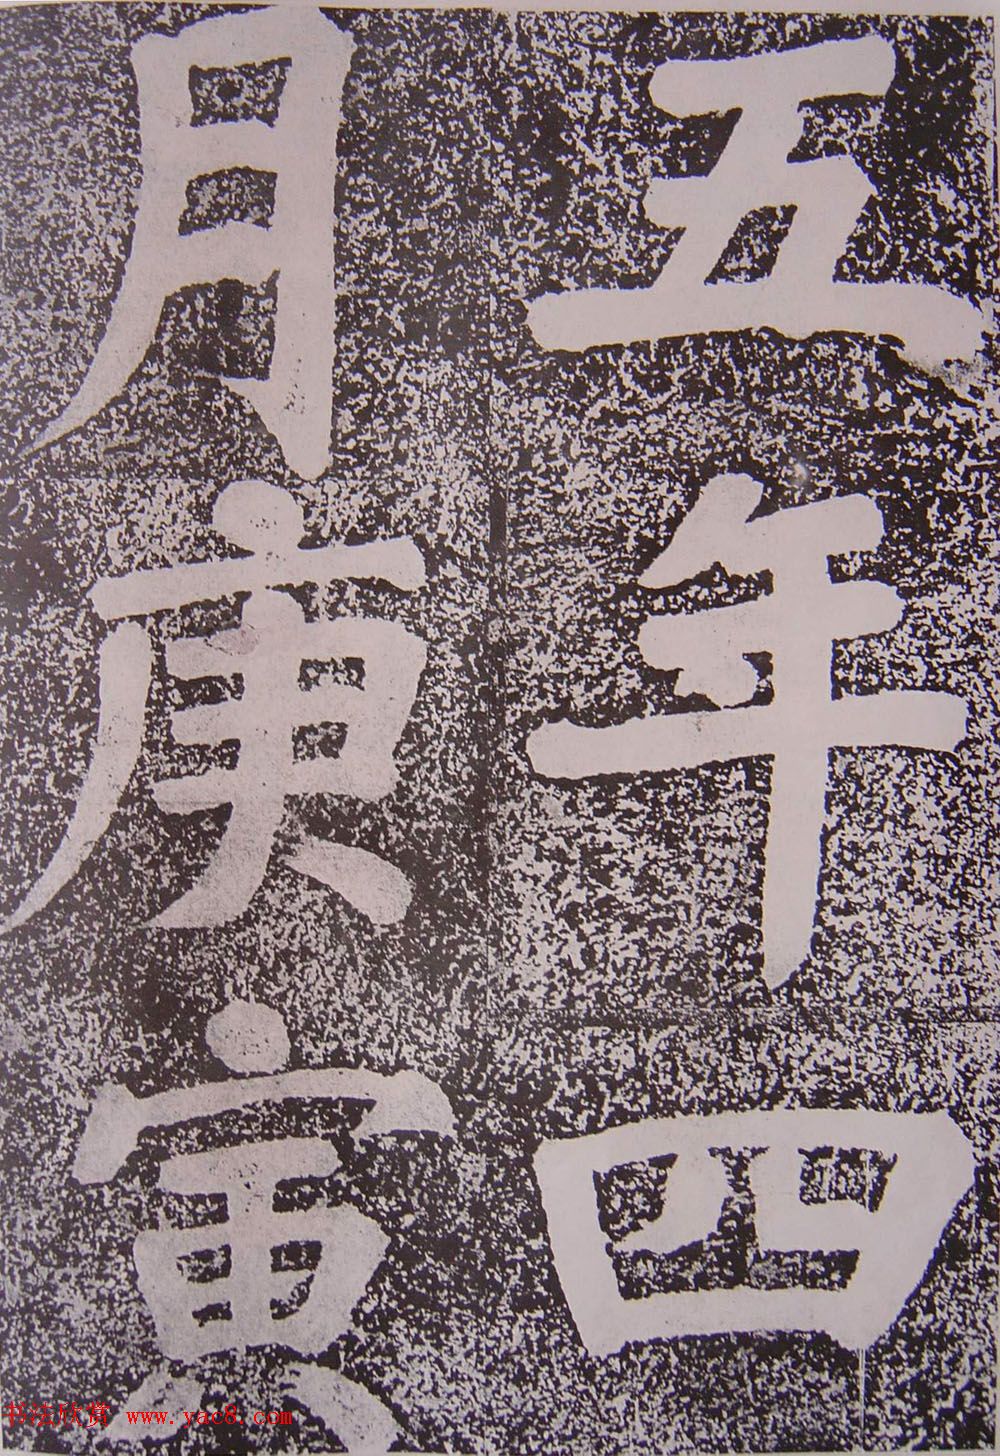 五年四
月庚寅
书法欣赏 www.yac8.com